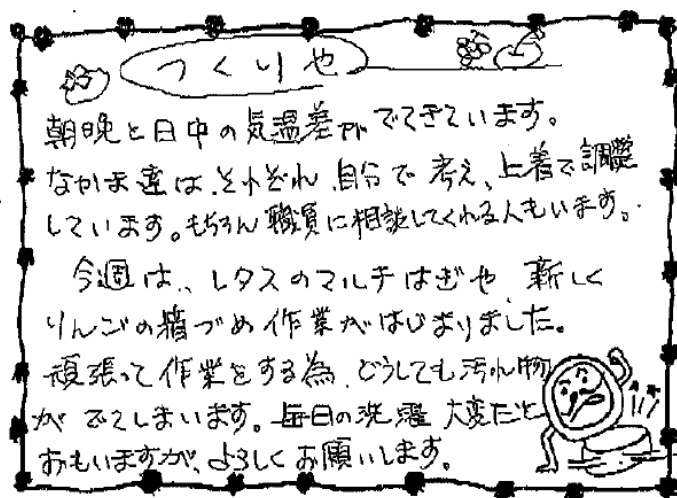 つくりや
朝晩と日中の気温差がでてきています。
なかま達は、それぞれ自分で考え、上着で調整
しています。もちろん職員に相談してくれる人もいます。
今週は、レタスのマルチはぎや、新しく
りんごの箱づめ作業がはじまりました。
頑張って作業をする為、どうしても汚れ物
がでてしまいます。毎日の洗濯大変だと
おもいますが、よろしくお願いします。